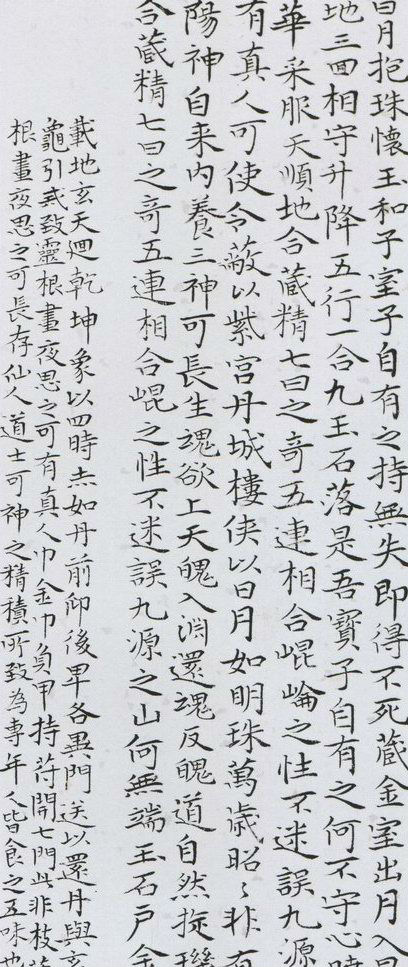 日月抱珠懷玉和子室子自有之持無失即得不死藏金室出月入日
地三回相守升降五行一合九玉石落是吾寶子自有之何不守心曉
華采服天順地合藏精七日之奇五連相合崐崘之性不迷誤九源
有真人可使令蔽以紫宮丹城樓俠以日月如明珠萬歲昭〻非有
陽神自来內養三神可長生魂欲上天魄入淵還魂反魄道自然璣
合藏精七日之奇五連相合崐之性不迷誤九源之山何無端玉石戶金
載地玄天迴乾坤象以四時赤如丹前仰後卑各異門送以還丹與玄
龜引炁致靈根晝夜思之可有真人巾金巾負甲持苻開七門此非枝
根晝夜思之可長存仙人道士可神之精積所致為專年人皆食之五味